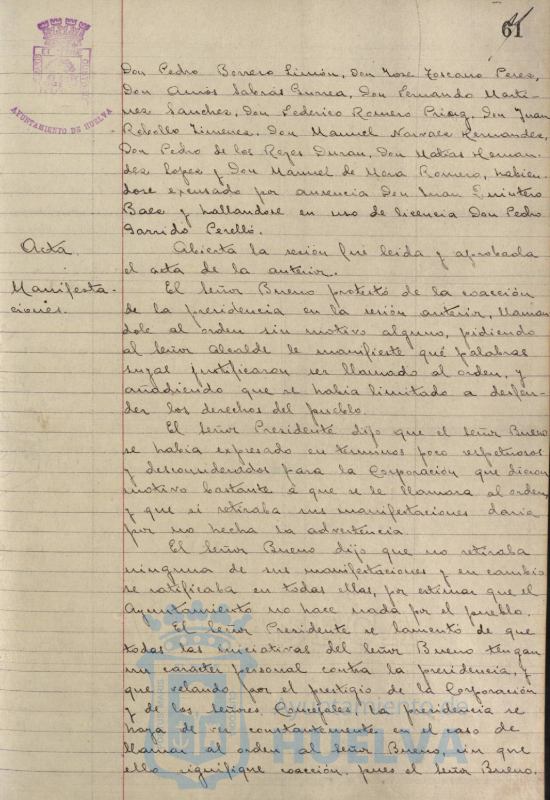 61
AYUNTAMIENTO DE HUELVA
Don Pedro Borrero Limón, Don Jose Toscano Perez,
Don Amós Sabrás Gurrea, Don Fernando Marti-
nez Sanchez, Don Federico Romero, Don Juan
Rebollo Jimenez, Don Manuel Narvaez Hernandez,
Don Pedro de los Reyes Duran, Don Matias Hernan-
dez Lopez y Don Manuel de Mora Romero, habien-
dose excusado por ausencia Don Juan Quintero
Baez y hallandose en uso de licencia Don Pedro
Garrido Perelló.
Acta.
Abierta la sesión fué leida y aprobada
el acta de la anterior.
Manifesta-
ciones.
El Señor Bueno protestó de la coacción
de la presidencia en la sesión anterior, llaman
dole al orden sin motivo alguno, pidiendo
al Señor Alcalde le manifieste qué palabras
suyas justificaron ser llamado al orden, y
añadiendo que se habia limitado a defen-
der los derechos del pueblo.
El Señor Presidente dijo que el Señor Bueno
se habia expresado en terminos poco respetuosos
y desconsiderados para la Corporación que dieron
motivo bastante á que se le llamara al orden
y que si retiraba sus manifestaciones daria
por no hecha la advertencia.
El Señor Bueno dijo que no retiraba
ninguna de sus manifestaciones y en cambio
se ratificaba en todas ellas, por estimar que el
Ayuntamiento no hace nada por el pueblo.
El Señor Presidente se lamentó de que
todas las iniciativas del Señor Bueno tengan
un caracter personal contra la presidencia, y
que velando por el prestigio de la Corporación
y de los Señores Concejales, la presidencia se
haya de ver constantemente en el caso de
llamar al orden al Señor Bueno, sin que
ello signifique coacción, pues el Señor Bueno,
Ayuntamiento de
HUELVA